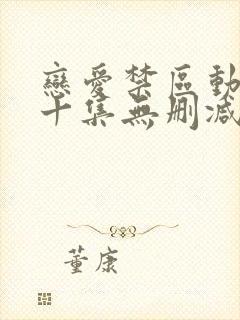 戀愛禁區動
十集無刪減
董康